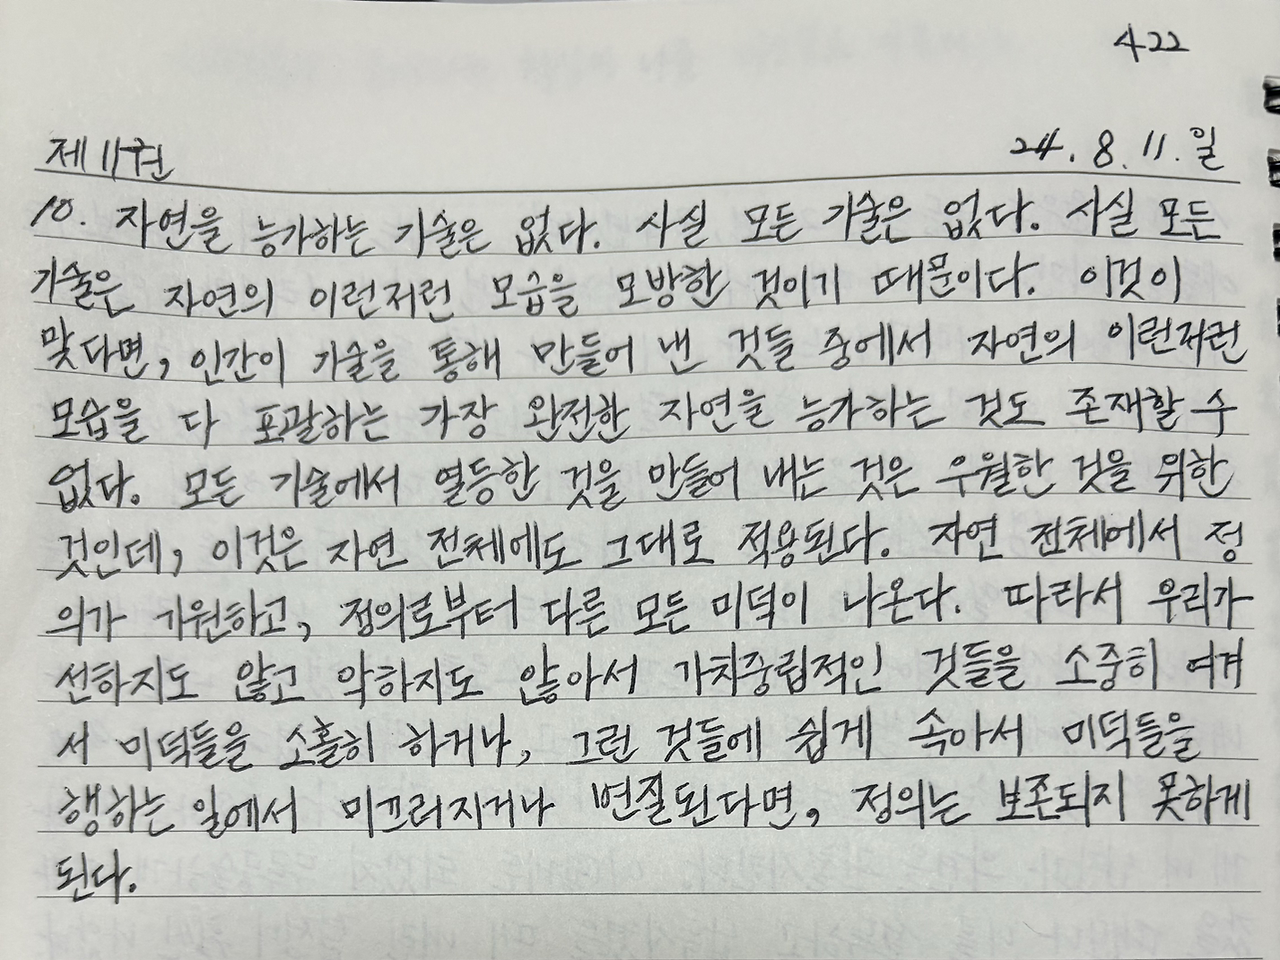 422
제 11권 24. 8. 11. 일
10. 자연을 능가하는 기술은 없다. 사실 모든 기술은 없다. 사실 모든
기술은 자연의 이런저런 모습을 모방한 것이기 때문이다. 이것이
맞다면, 인간이 기술을 통해 만들어 낸 것들 중에서 자연의 이런저런
모습을 다 포괄하는 가장 완전한 자연을 능가하는 것도 존재할 수
없다. 모든 기술에서 열등한 것을 만들어 내는 것은 우월한 것을 위한
것인데, 이것은 자연 전체에도 그대로 적용된다. 자연 전체에서 정
의가 기원하고, 정의로부터 다른 모든 미덕이 나온다. 따라서 우리가
선하지도 않고 악하지도 않아서 가치중립적인 것들을 소중히 여겨
서 미덕들을 소홀히 하거나, 그런 것들에 쉽게 속아서 미덕들을
행하는 일에서 미끄러지거나 변질된다면, 정의는 보존되지 못하게
된다.